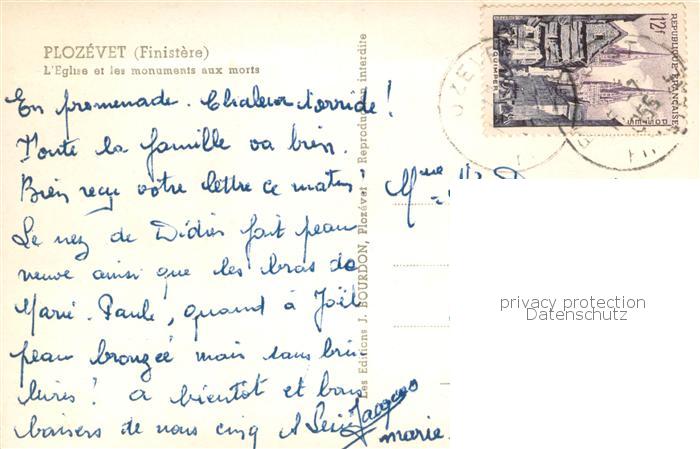 PLOZÉVET (Finistère)
L'Eglise et les monuments aux morts
En promenade. Chaleur torride !
Toute la famille va bien.
Bien reçu votre lettre ce matin
Le nez de Didier fait peau
neuve ainsi que les bras de
Marie-Paule, quand à Joël
peau bronzée mais sans brû
lures ! à bientôt et bons
baisers de nous cinq
Jacques
marie.
Les Editions J. BOURDON, Plozévet - Reproduction interdite
Mme
12f
REPUBLIQUE FRANÇAISE
TREGUIER
privacy protection
Datenschutz